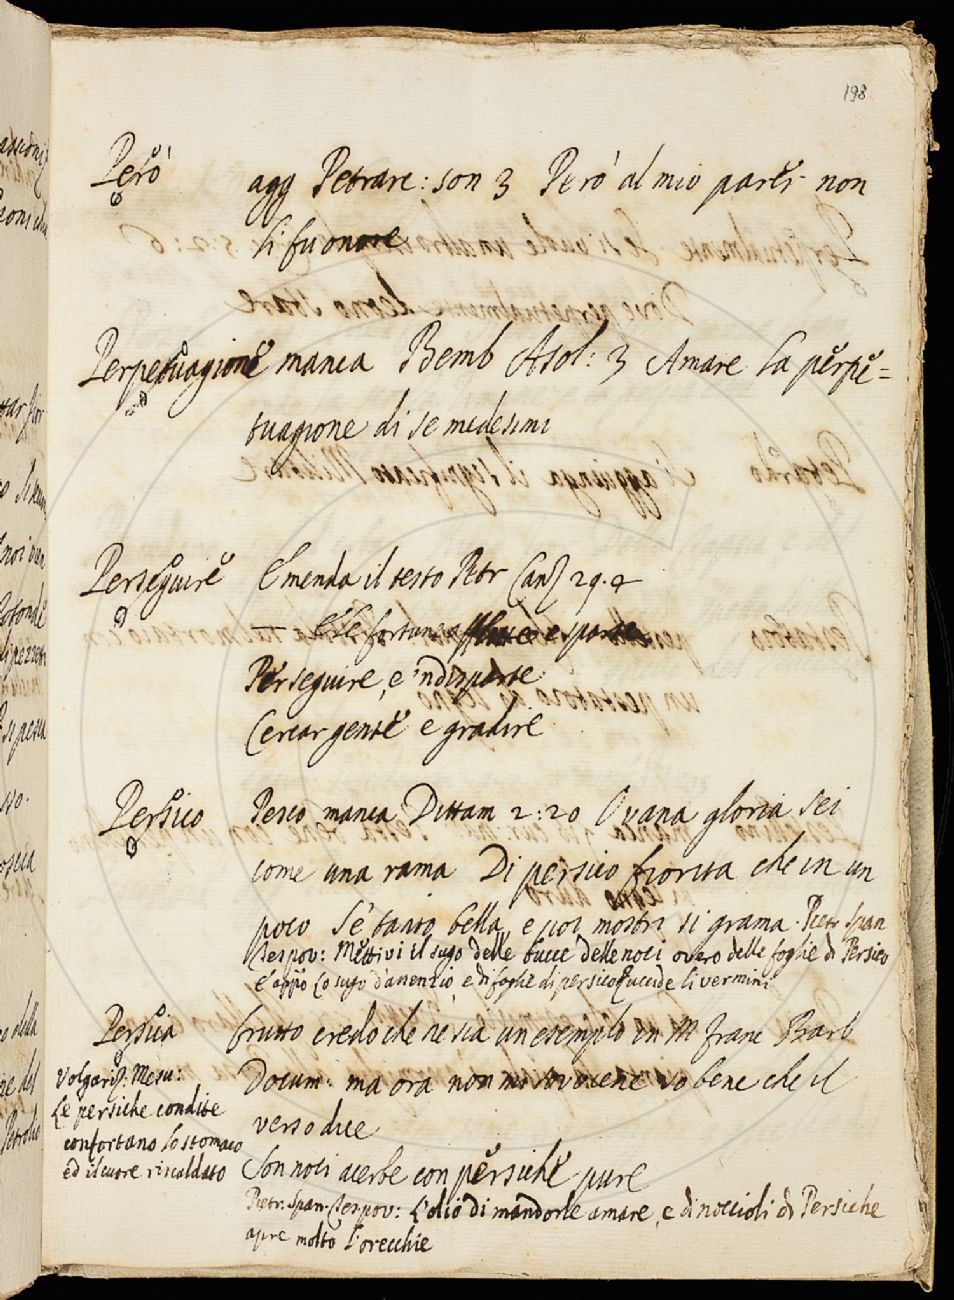 198
Però
agg Petrarc: son 3 Però al mio parer non
li fu onore
Perpetuagione manca Bemb Asol: 3 Amare la perpe=
tuagione di se medesimi
Perseguire
Emenda il testo Petr Canz 29.4
— e le fortune e sparse
Perseguire, e 'n disparte
Cercar gente e gradire
Persico
Pesco manca Dittam 2:20 O vana gloria sei
come una rama Di persico fiorita che in un
poco Se' tanto bella, e poi mostri si grama. Pietr Span
Mettivi il sugo delle bucce delle noci overo delle foglie di Persico
E appo Lo sugo d'assenzio, e di foglie di persico uccide li vermini
Persica
frutto credo che ne sia un esempio in M Franc Barb
Docum: ma ora non mi sovviene so bene che il
verso dice
Son noci acerbe con persiche pure
Pietr. Span. L'olio di mandorle amare, e di noccioli di Persiche
apre molto l'orecchie
Volgariz. Mesu:
Le persiche condite
confortano lo stomaco
ed il cuore riscaldato